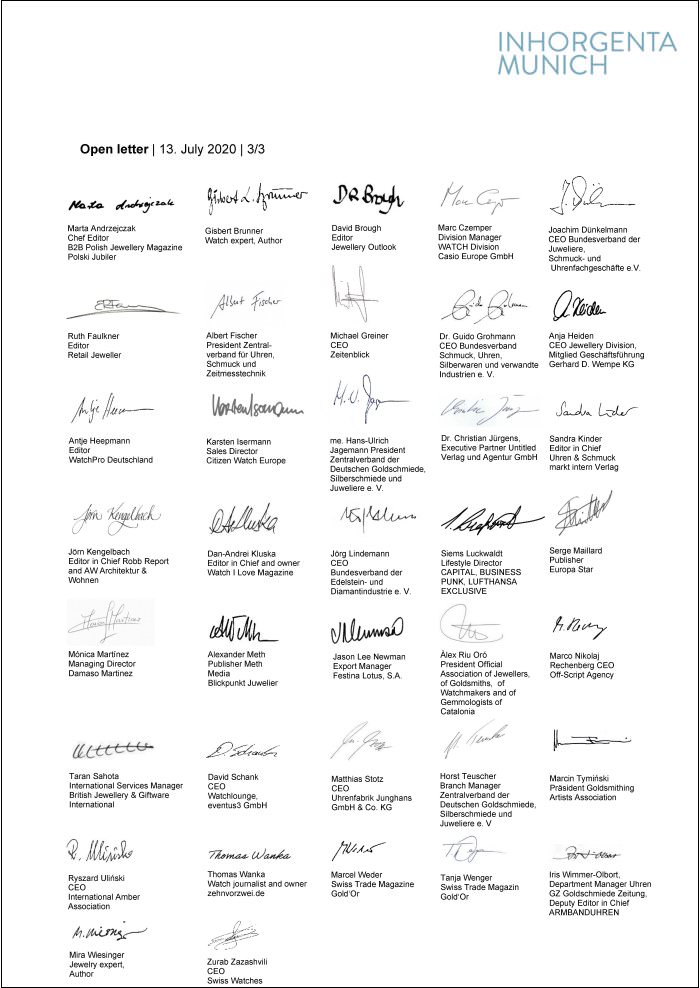 INHORGENTA
MUNICH
Open letter | 13. July 2020 | 3/3
Marta Andrzejczak
Marta Andrzejczak
Chef Editor
B2B Polish Jewellery Magazine
Polski Jubiler
Gisbert L. Brunner
Gisbert Brunner
Watch expert, Author
DR Brough
David Brough
Editor
Jewellery Outlook
Marc Czemper
Division Manager
WATCH Division
Casio Europe GmbH
J. Dünk
Joachim Dünkelmann
CEO Bundesverband der
Juweliere,
Schmuck- und
Uhrenfachgeschäfte e.V.
Ruth Faulkner
Editor
Retail Jeweller
Albert Fischer
Albert Fischer
President Zentral-
verband für Uhren,
Schmuck und
Zeitmesstechnik
Michael Greiner
CEO
Zeitenblick
Guido Grohmann
Dr. Guido Grohmann
CEO Bundesverband
Schmuck, Uhren,
Silberwaren und verwandte
Industrien e. V.
A. Heiden
Anja Heiden
CEO Jewellery Division,
Mitglied Geschäftsführung
Gerhard D. Wempe KG
Antje Heepmann
Editor
WatchPro Deutschland
Karsten Isermann
Sales Director
Citizen Watch Europe
me. Hans-Ulrich
Jagemann President
Zentralverband der
Deutschen Goldschmiede,
Silberschmiede und
Juweliere e. V.
Dr. Christian Jürgens,
Executive Partner Untitled
Verlag und Agentur GmbH
Sandra Kinder
Editor in Chief
Uhren & Schmuck
markt intern Verlag
Jörn Kengelbach
Jörn Kengelbach
Editor in Chief Robb Report
and AW Architektur &
Wohnen
Dan-Andrei Kluska
Editor in Chief and owner
Watch I Love Magazine
Jörg Lindemann
CEO
Bundesverband der
Edelstein- und
Diamantindustrie e. V.
Siems Luckwaldt
Lifestyle Director
CAPITAL, BUSINESS
PUNK, LUFTHANSA
EXCLUSIVE
Serge Maillard
Publisher
Europa Star
Mónica Martínez
Managing Director
Damaso Martinez
Alexander Meth
Publisher Meth
Media
Blickpunkt Juwelier
Jason Lee Newman
Export Manager
Festina Lotus, S.A.
Álex Riu Oró
President Official
Association of Jewellers,
of Goldsmiths, of
Watchmakers and of
Gemmologists of
Catalonia
Marco Nikolaj
Rechenberg CEO
Off-Script Agency
Taran Sahota
International Services Manager
British Jewellery & Giftware
International
David Schank
CEO
Watchlounge,
eventus3 GmbH
Matthias Stotz
CEO
Uhrenfabrik Junghans
GmbH & Co. KG
Horst Teuscher
Branch Manager
Zentralverband der
Deutschen Goldschmiede,
Silberschmiede und
Juweliere e. V
Marcin Tymiński
Präsident Goldsmithing
Artists Association
Ryszard Uliński
CEO
International Amber
Association
Thomas Wanka
Thomas Wanka
Watch journalist and owner
zehnvorzwei.de
Marcel Weder
Swiss Trade Magazine
Gold'Or
Tanja Wenger
Swiss Trade Magazin
Gold'Or
Iris Wimmer-Olbort,
Department Manager Uhren
GZ Goldschmiede Zeitung,
Deputy Editor in Chief
ARMBANDUHREN
Mira Wiesinger
Jewelry expert,
Author
Zurab Zazashvili
CEO
Swiss Watches